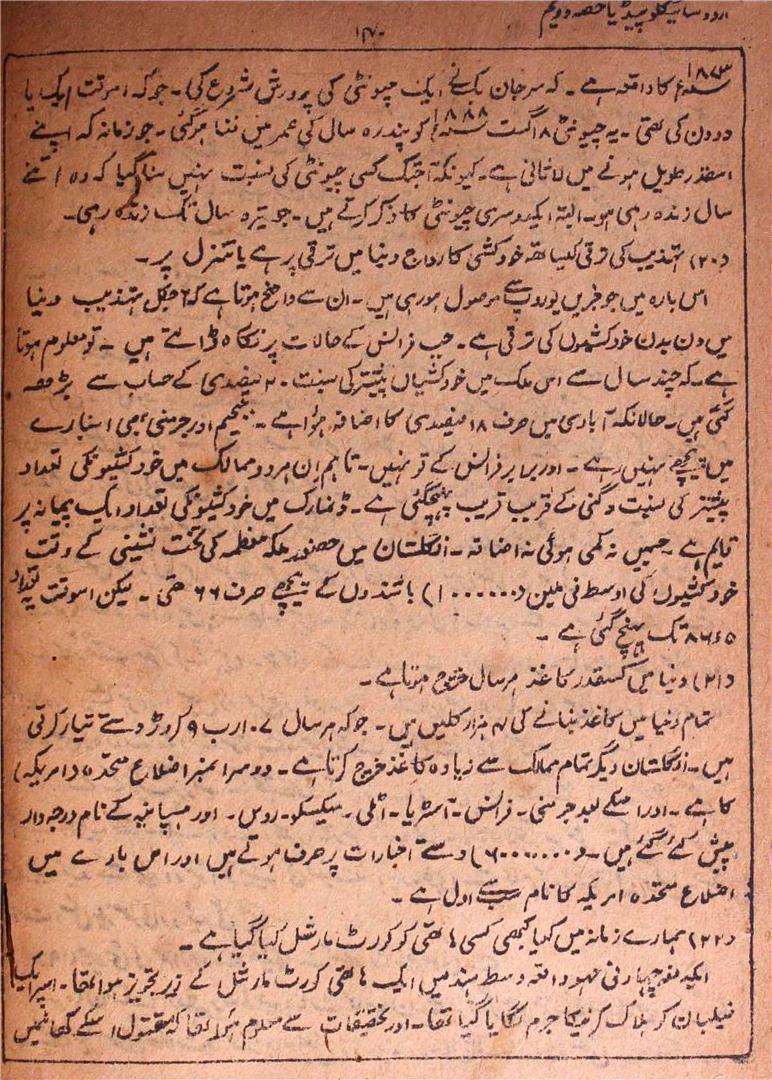 اردو سائیکلو پیڈیا حصہ دویم
۱۴۰
۱۸۷۳ء کا واقعہ ہے۔ کہ سرجان بک نے ایک چیونٹی کی پرورش شروع کی۔ جو کہ اسوقت ایک یا
دو دن کی تھی۔ یہ چیونٹی ۸ اگست ۱۸۸۸ء کو پندرہ سال کی عمر میں فنا ہو گئی۔ جو زمانہ کہ اپنے
اسقدر طویل ہونے میں لاثانی ہے۔ کیونکہ آجتک کسی چیونٹی کی نسبت نہیں سنا گیا کہ وہ اتنے
سال زندہ رہی ہو۔ البتہ ایک دوسری چیونٹی کا ذکر کرتے ہیں۔ جو تیرہ سال تک زندہ رہی۔
(۲۰) تہذیب کی ترقی کیساتھ خودکشی کا رواج دنیا میں ترقی پر ہے یا تنزل پر۔
اس بارہ میں جو خبریں یوروپ سے موصول ہو رہی ہیں۔ ان سے واضح ہوتا ہے کہ آجکل تہذیب دنیا
میں دن بدن خودکشیوں کی ترقی ہے۔ جب فرانس کے حالات پر نگاہ ڈالتے ہیں۔ تو معلوم ہوتا
ہے۔ کہ چند سال سے اس ملک میں خودکشیاں پیشتر کی نسبت ۔ فیصدی کے حساب سے بڑھ
گئی ہیں۔ حالانکہ آبادی میں صرف ۱۸ فیصدی کا اضافہ ہوا ہے۔ بلجیم اور جرمنی بھی اس بارے
میں پیچھے نہیں رہے۔ اور برابر فرانس کے تو نہیں۔ تاہم ان ہر دو ممالک میں خودکشیونکی تعداد
پیشتر کی نسبت دگنی کے قریب قریب پہنچ گئی ہے۔ ڈنمارک میں خودکشیونکی تعداد ایک پیمانہ پر
قایم ہے۔ جسمیں نہ کمی ہوئی نہ اضافہ۔ انگلستان میں حضور ملکہ معظمہ کی تخت نشینی کے وقت
خودکشیوں کی اوسط فی ملین (۱۰۰۰۰۰۰) باشندوں کے پیچھے صرف ۶۶ تھی۔ لیکن اسوقت یہ تعداد
تک پہنچ گئی ہے۔
(۲۱) دنیا میں کسقدر کاغذ ہر سال خرچ ہوتا ہے۔
تمام دنیا میں کاغذ بنانے کی ۴ ہزار کلیں ہیں۔ جو کہ ہر سال ۷۰ ارب ۹ کروڑ دستے تیار کرتی
ہیں۔ انگلستان دیگر تمام ممالک سے زیادہ کاغذ خرچ کرتا ہے۔ دوسرا نمبر اضلاع متحدہ (امریکہ)
کا ہے۔ اور اسکے بعد جرمنی۔ فرانس۔ آسٹریا۔ اٹلی۔ میکسیکو۔ روس۔ اور ہسپانیہ کے نام درجہ وار
پیش کئے گئے ہیں۔ دستے اخبارات پر صرف ہوتے ہیں اور اس بارے میں
اضلاع متحدہ امریکہ کا نام سب سے اول ہے۔
(۲۲) ہمارے زمانہ میں کیا کبھی کسی ہاتھی کو کورٹ مارشل کیا گیا ہے۔
ایک دفعہ چھاونی مہو واقعہ وسط ہند میں ایک ہاتھی کورٹ مارشل کے زیر تجویز ہوا تھا۔ اسپر ایک
فیلبان کو ہلاک کرنیکا جرم لگایا گیا تھا۔ اور تحقیقات سے معلوم ہوا تھا کہ مقتول اسکے کھانیمیں